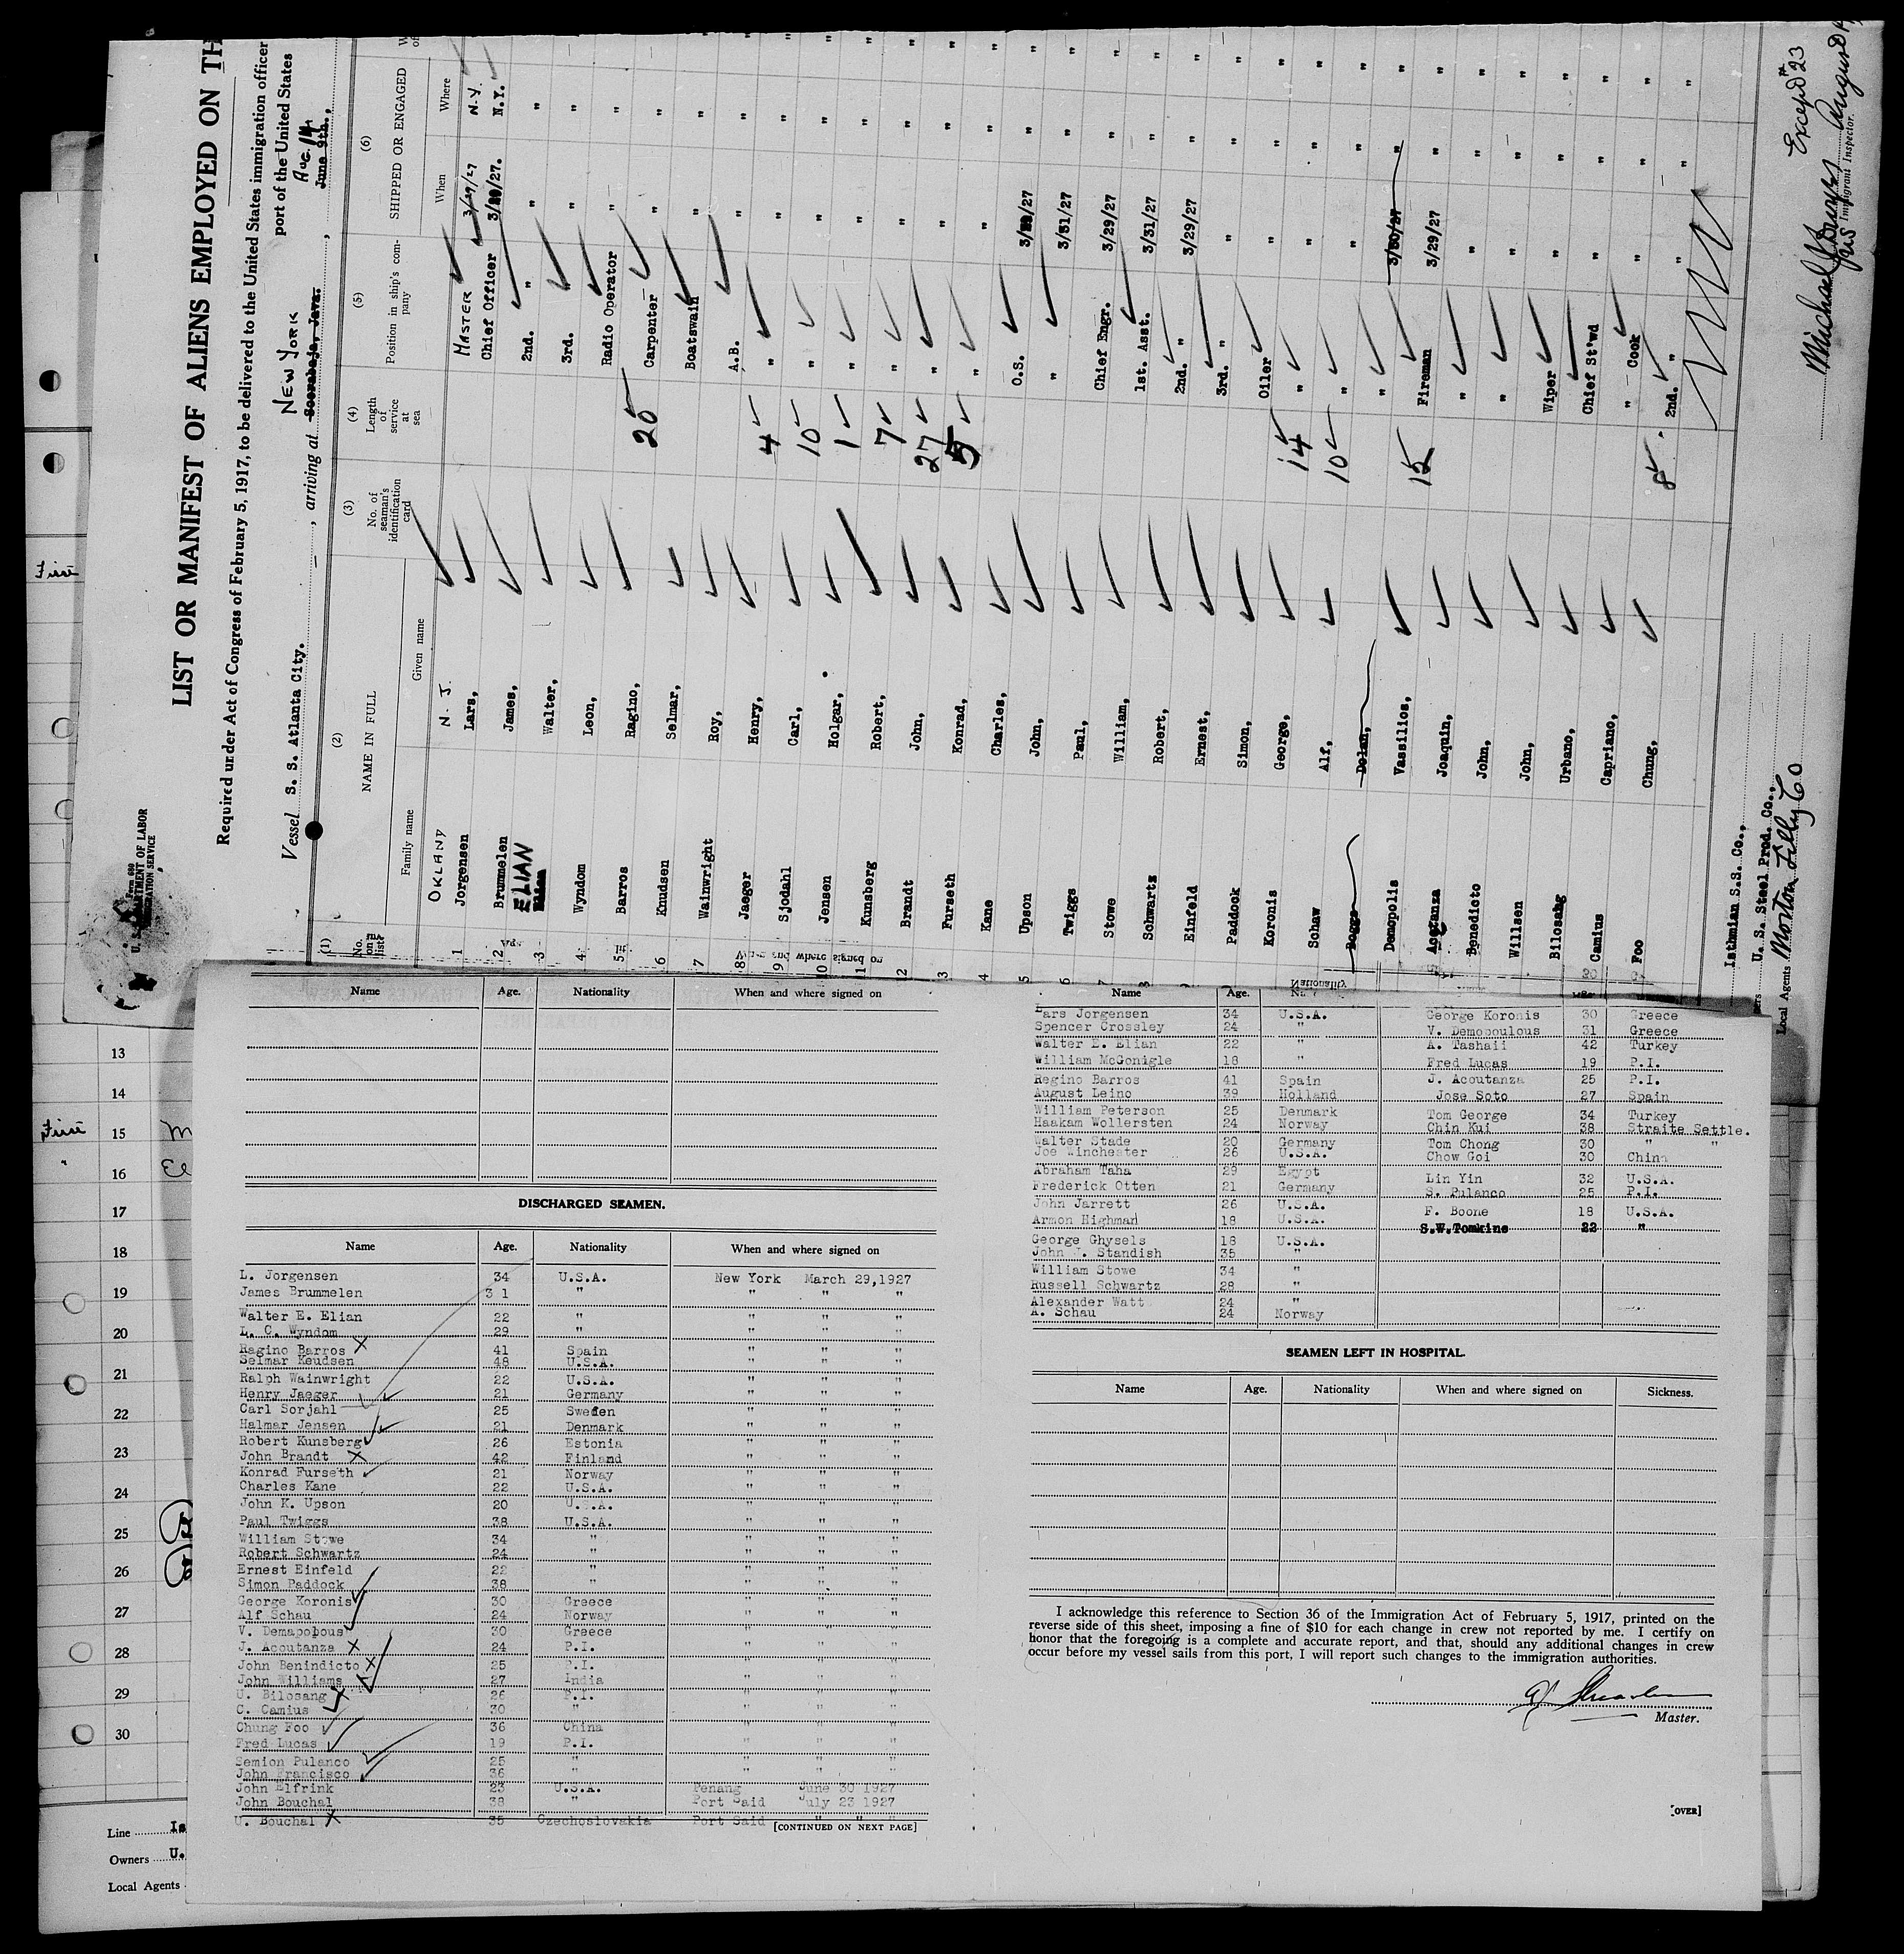 Form 680
U. S. DEPARTMENT OF LABOR
IMMIGRATION SERVICE
LIST OR MANIFEST OF ALIENS EMPLOYED ON TH
Required under Act of Congress of February 5, 1917, to be delivered to the United States immigration officer
port of the United States
Vessel S. S. Atlanta City. , arriving at Soerabaja, Java. NEW YORK , June 9th., AUG. 14
(1) (2) (3) (4) (5) (6)
No. on list NAME IN FULL No. of seaman's identification card Length of service at sea Position in ship's company SHIPPED OR ENGAGED
Family name Given name When Where
OKLANY N. J. MASTER 3/29/27 N.Y.
1 Jorgensen Lars, Chief Officer 3/29/27. N.Y.
2 Brummelen James, 2nd. " " "
3 ELIAN Walter, 3rd. " "
4 Wyndom Leon, Radio Operator " "
5 Barros Ragino, 20 Carpenter " "
6 Knudsen Selmar, Boatswain " "
7 Wainwright Roy, A.B. " "
8 Jaeger Henry, 4 " " "
9 Sjodahl Carl, 10 " " "
10 Jensen Holgar, 1 " " "
11 Kunsberg Robert, 7 " " "
12 Brandt John, 27 " " "
13 Furseth Konrad, 5 " " "
4 Kane Charles, O.S. 3/29/27 "
5 Upson John, " 3/31/27 "
6 Twiggs Paul, Chief Engr. 3/29/27 "
7 Stowe William, 1st. Asst. 3/31/27 "
8 Schwartz Robert, 2nd. " 3/29/27 "
Einfeld Ernest, 3rd. " " "
Paddock Simon, Oiler " "
Koronis George, 14 " " "
Schaw Alf, 10 " " "
Boggs Dolan, " 3/30/27 "
Demopolis Vassilios, 15 Fireman 3/29/27 "
Acoganza Joaquin, " " "
Benedicto John, " " "
Willsen John, Wiper " "
Bilosabg Urbano, Chief St'wd " "
Camius Capriano, " Cook " "
Foo Chung, 8 2nd. " " "
Isthmian S.S. Co.,
U. S. Steel Prod. Co.,
Local Agents Morton Lilly Co
Excepd 23
Immigrant Inspector.
First
13
14
First 15
" 16
17
18
19
20
21
22
23
24
25
26
27
28
29
30
Line Is
Owners U.
Local Agents
Name Age. Nationality When and where signed on
DISCHARGED SEAMEN.
Name Age. Nationality When and where signed on
L. Jorgensen 34 U.S.A. New York March 29,1927
James Brummelen 31 " " " "
Walter E. Elian 22 " " " "
L. C. Wyndom 29 " " " "
Ragino Barros X 41 Spain " " "
Selmar Keudsen 48 U.S.A. " " "
Ralph Wainwright 22 U.S.A. " " "
Henry Jaeger 21 Germany " " "
Carl Sorjahl 25 Sweden " " "
Halmar Jensen 21 Denmark " " "
Robert Kunsberg 26 Estonia " " "
John Brandt X 42 Finland " " "
Konrad Furseth 21 Norway " " "
Charles Kane 22 U.S.A. " " "
John K. Upson 20 U.S.A. " " "
Paul Twiggs 38 U.S.A. " " "
William Stowe 34 " " " "
Robert Schwartz 24 " " " "
Ernest Einfeld 22 " " " "
Simon Paddock 38 " " " "
George Koronis 30 Greece " " "
Alf Schau 24 Norway " " "
V. Demapobous 30 Greece " " "
J. Acoutanza X 24 P.I. " " "
John Benindicto X 25 P.I. " " "
John Williams 27 India " " "
U. Bilosang X 26 P.I. " " "
C. Camius 30 " " " "
Chung Foo 36 China " " "
Fred Lucas 19 P.I. " " "
Semion Pulanco 25 " " " "
John Francisco 36 " " " "
John Elfrink 23 U.S.A. Penang June 30 1927
John Bouchal 38 " Port Said July 23 1927
U. Bouchal X 35 Czechoslovakia Port Said " " "
[CONTINUED ON NEXT PAGE]
Name Age. Nationality
Lars Jorgensen 34 U.S.A. George Koronis 30 Greece
Spencer Crossley 24 " V. Demopoulous 31 Greece
Walter E. Elian 22 " A. Tashaii 42 Turkey
William McGonigle 18 " Fred Lucas 19 P.I.
Regino Barros 41 Spain J. Acoutanza 25 P.I.
August Leino 39 Holland Jose Soto 27 Spain
William Peterson 25 Denmark Tom George 34 Turkey
Haakam Wollersten 24 Norway Chin Kui 38 Straite Settle.
Walter Stade 20 Germany Tom Chong 30 " "
Joe Winchester 26 U.S.A. Chow Goi 30 China
Abraham Taha 29 Egypt Lin Yin 32 U.S.A.
Frederick Otten 21 Germany S. Pulanco 25 P.I.
John Jarrett 26 U.S.A. F. Boone 18 U.S.A.
Armon Highman 18 U.S.A. S.W.Tomkins 22 "
George Ghysels 18 U.S.A.
John J. Standish 35 "
William Stowe 34 "
Russell Schwartz 28 "
Alexander Watt 24 "
A. Schau 24 Norway
SEAMEN LEFT IN HOSPITAL.
Name Age. Nationality When and where signed on Sickness.
I acknowledge this reference to Section 36 of the Immigration Act of February 5, 1917, printed on the
reverse side of this sheet, imposing a fine of $10 for each change in crew not reported by me. I certify on
honor that the foregoing is a complete and accurate report, and that, should any additional changes in crew
occur before my vessel sails from this port, I will report such changes to the immigration authorities.
Master.
[OVER]